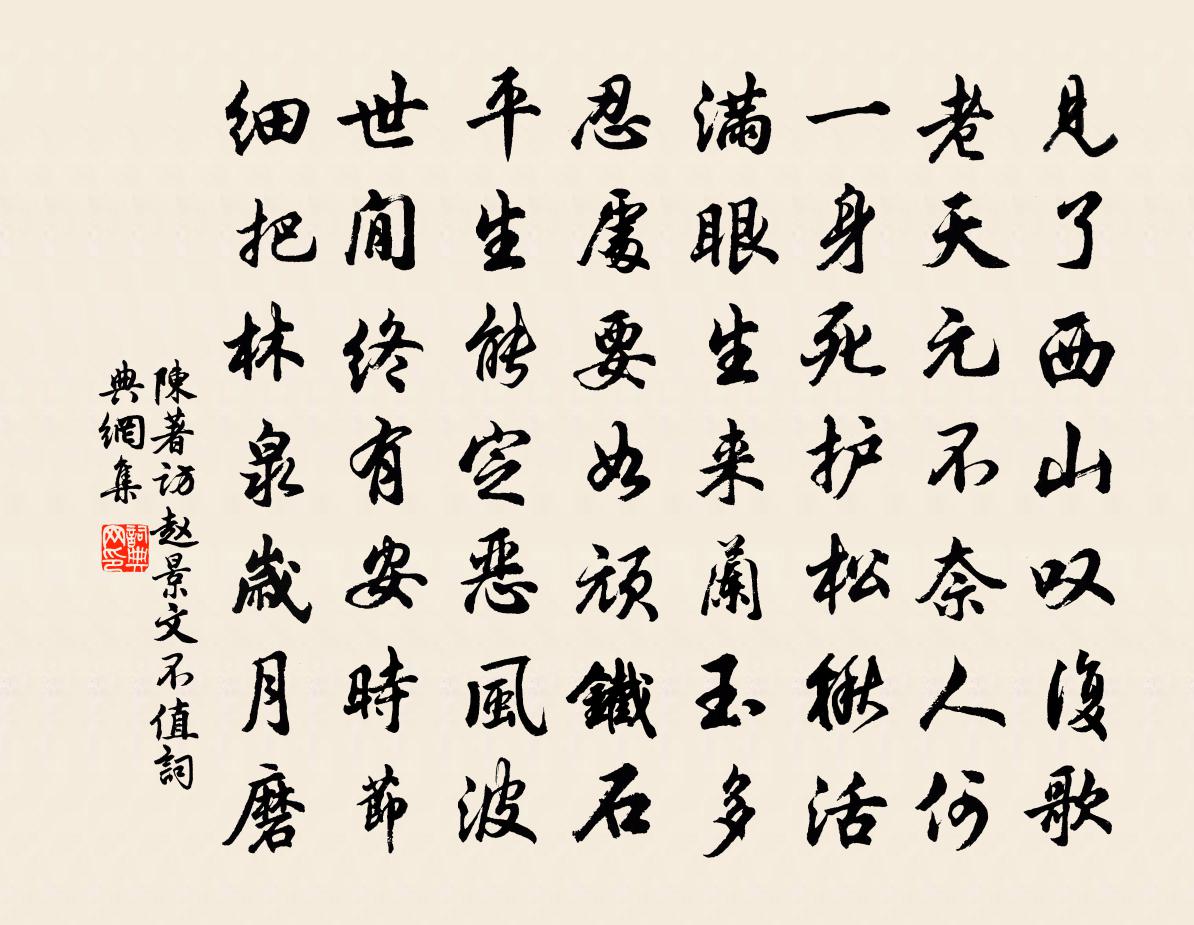 見了西山叹復歌
老天元不奈人何
一身死护松楸活
滿眼生来蘭玉多
忍處要如頑鐵石
平生能定惡風波
世間終有安時節
細把林泉歲月磨
陳著访赵景文不值詞
典網集
詞典網印